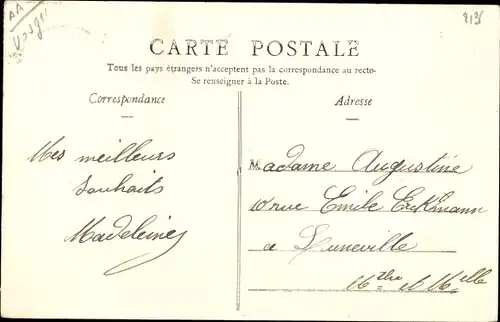 AA
Vosges
CARTE POSTALE
Tous les pays étrangers n'acceptent pas la correspondance au recto-
Se renseigner à la Poste.
Correspondance
Mes meilleurs
souhaits
Madeleine
Adresse
Madame Augustine
10 rue Emile Erckmann
a Luneville
Mthe et Mlle